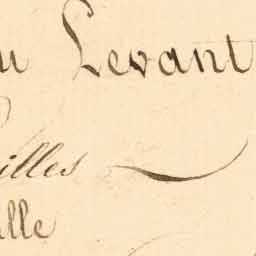 u Levant
illes
lle